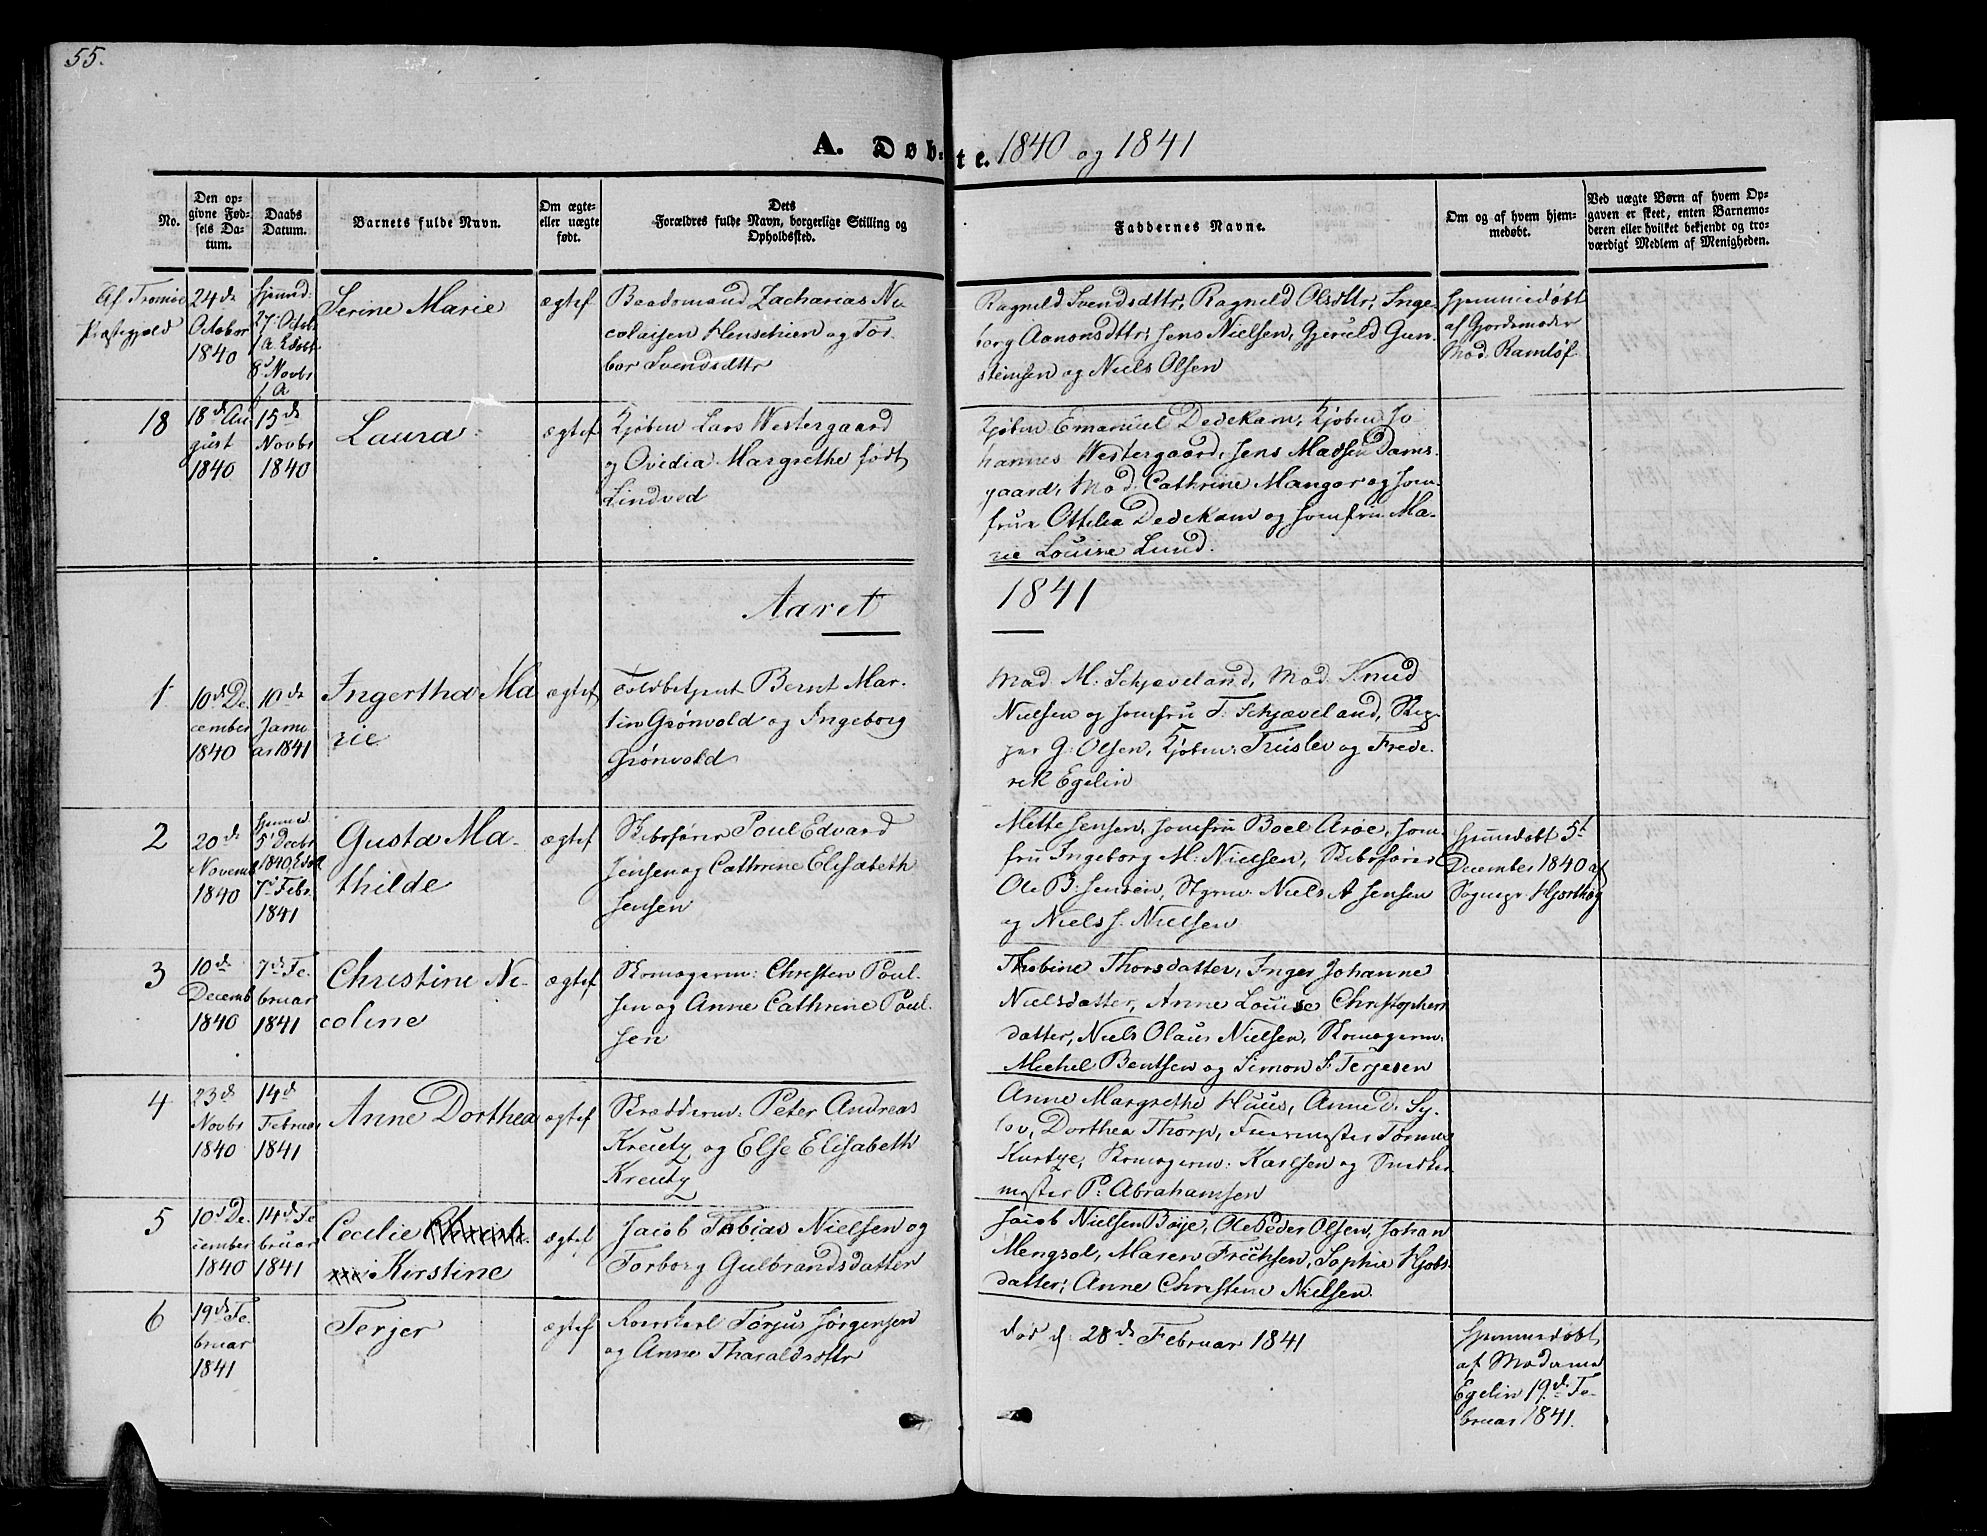 55.
A. Døb-
te. 1840 og 1841
No.
Den op-
givne Fød-
sels Da-
tum.
Daabs
Datum.
Barnets fulde Navn.
Om ægte-
eller uægte
født.
Dets
Forældres fulde Navn, borgerlige Stilling og
Opholdssted.
Faddernes Navne.
Om og af hvem hjem-
medøbt.
Ved uægte Børn af hvem Op-
gaven er skeet, enten Barnemo-
deren eller hvilket bekjendt og tro-
værdigt Medlem af Menigheden.
Af Tromøe
Præstegjeld
24de
October
1840
27 Octob
8d Novbr
Serine Marie
ægtef
Baadsmand Zacharias Ni-
colaisen Henschien og Tor-
bor Svendsdttr
Ragneld Svendsdttr, Ragneld Olsdttr, Inge-
borg Aanonsdttr, Jens Nielsen, Gjeruld Gun-
steinsen og Niels Olsen
Hjemmedøbt
af Gjordemoder
Mad. Ramløf
18
18d Au
gust
1840
15de
Novbr
1840
Laura
ægtef
Kjøbm Lars Westergaard
og Ovidia Margrethe født
Lindved
Kjøbm Emanuel Dedekam, Kjøbm Jo
hannes Westergaard, Jens Madsen Dams-
gaard, Mad. Cathrine Mangor og Jom-
frue Ottilia Dedekam og Jomfru Ma-
rie Louise Lund.
Aaret
1841
1
10de De
cember
1840
10de
Janu
ar 1841
Ingertha Ma
rie
ægtef
Toldbetjent Bernt Mar-
tin Grønvold og Ingeborg
Grønvold
Mad. M: Schjøveland, Mad. Knud
Nielsen og Jomfru T: Schjæveland, Skip-
per G: Olsen, Kjøbm: Truslev og Frede-
rik Egelin
2
20de
Novemb
1840
Hjemmed
5t Decbr
1840,
7d Febr.
1841
Gusta Ma-
thilde
ægtef
Skibsfører Poul Edvard
Jensen og Cathrine Elisabeth
Jensen
Mette Jensen, Jomfru Boel Arøe, Jom-
fru Ingeborg M: Nielsen, Skibsfører
Ole B: Jensen, Styrm: Niels A Jensen
og Niels J. Nielsen
Hjemmdøbt 5t
December 1840 af
Sognepr Hjorthøg
3
10de
Decemb
1840
7de Fe
bruar
1841
Christine Ni-
coline
ægtef
Skomagerm: Christen Poul-
sen og Anne Cathrine Poul-
sen
Thobine Thorsdatter, Inger Johanne
Nielsdatter, Anne Louise Christophers
datter, Niels Olaus Nielsen, Skomagerm.
Michel Bentsen og Simon F. Terjesen
4
23de
Novbr
1840
14de
Februar
1841
Anne Dorthea
ægtef
Skrædderm: Peter Andreas
Kreutz og Else Elisabeth
Kreutz
Anne Margrethe Huus, Anne v. Sy-
lov, Dorthea Thorp,
Kurtze, Skomagerm: Karlsen og Snedker
mester P: Abrahamsen
5
10d De-
cember
1840
14de Fe
bruar
1841
Cecilie
Kirstine
ægtef
Jacob Tobias Nielsen og
Torborg Gulbrandsdatter
Jacob Nielsen Bøye, Ole Peder Olsen, Johan
Mengsol, Maren Friichsen, Sophie Hjobs
datter, Anne Christine Nielsen.
6
19de Fe
bruar
1841
Terjer
ægtef
Torjus Jørgensen
og Anne Tharaldsdttr
død d. 28de Februar 1841
Hjemmedøbt
af Madame
Egelin 19de Fe-
bruar 1841.